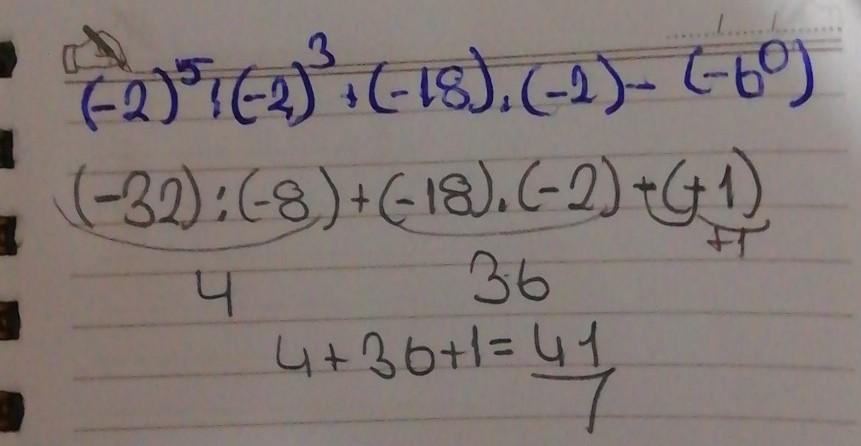 (-2)⁵:(-2)³+(-18).(-2)-(-6⁰)
(-32):(-8)+(-18).(-2)+(+1)
+1
4 36
4+36+1=41